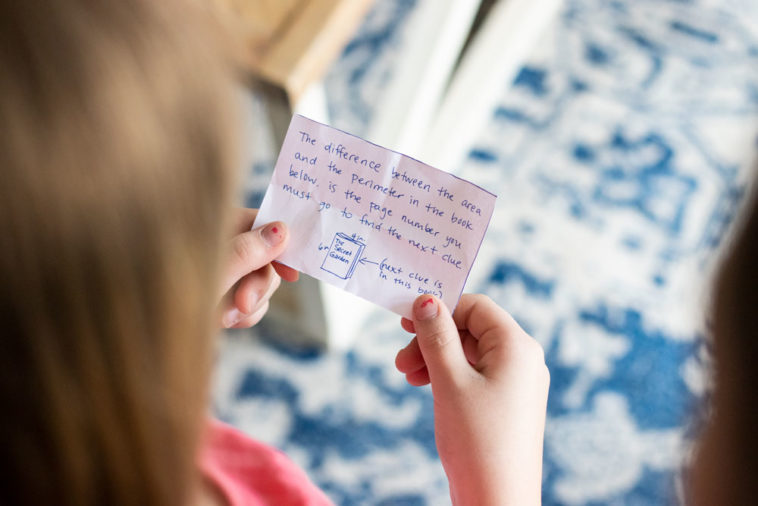 The difference between the area
and the perimeter in the book
below, is the page number you
must go to find the next clue
4in.
6in
The
Secret
Garden
(next clue is
in this book)